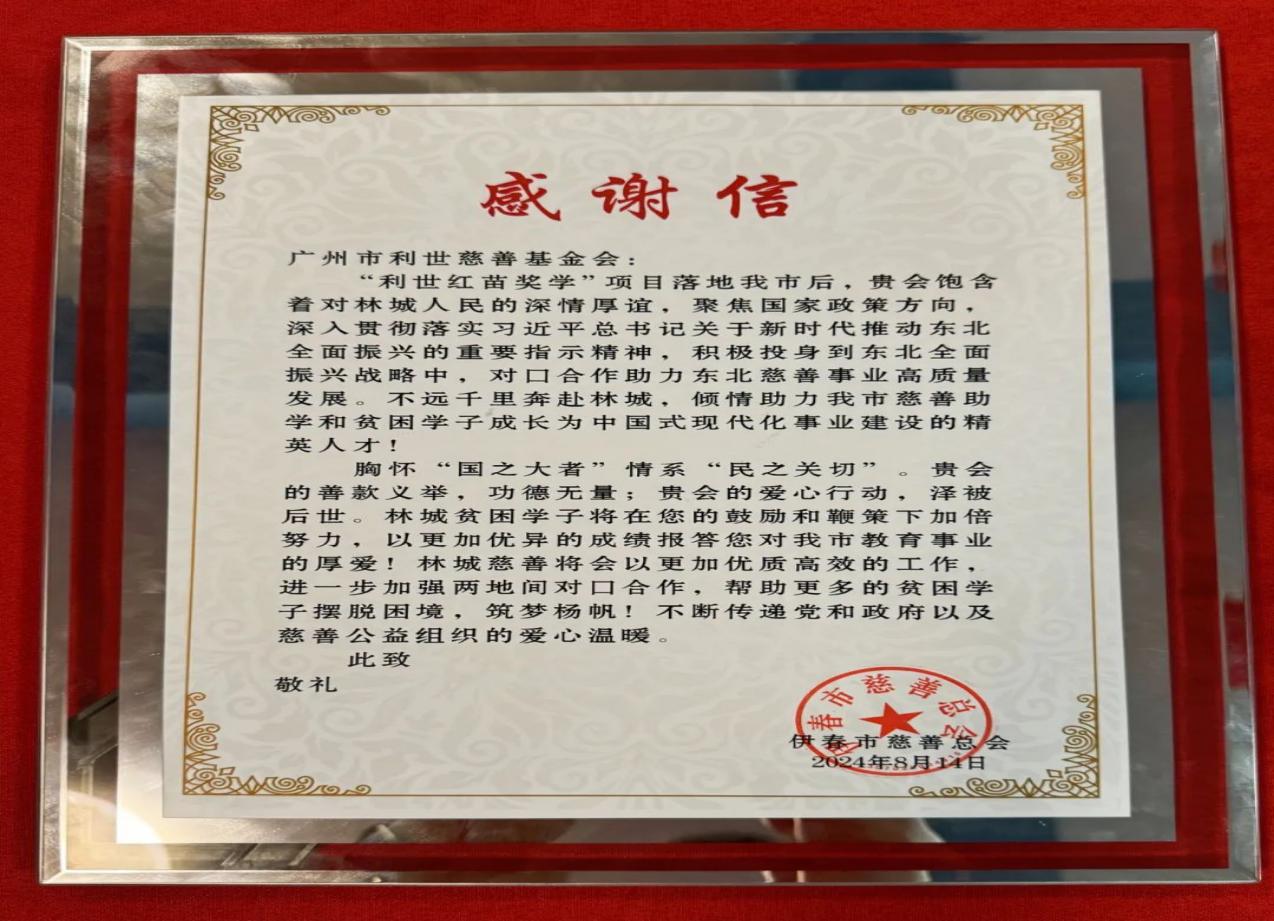 感谢信
广州市利世慈善基金会：
“利世红苗奖学”项目落地我市后，贵会饱含
着对林城人民的深情厚谊，聚焦国家政策方向，
深入贯彻落实习近平总书记关于新时代推动东北
全面振兴的重要指示精神，积极投身到东北全面
振兴战略中，对口合作助力东北慈善事业高质量
发展。不远千里奔赴林城，倾情助力我市慈善助
学和贫困学子成长为中国式现代化事业建设的精
英人才！
胸怀“国之大者”情系“民之关切”。贵会
的善款义举，功德无量；贵会的爱心行动，泽被
后世。林城贫困学子将在您的鼓励和鞭策下加倍
努力，以更加优异的成绩报答您对我市教育事业
的厚爱！林城慈善将会以更加优质高效的工作，
进一步加强两地间对口合作，帮助更多的贫困学
子摆脱困境，筑梦杨帆！不断传递党和政府以及
慈善公益组织的爱心温暖。
此致
敬礼
伊春市慈善总会
伊春市慈善总会
2024年8月14日